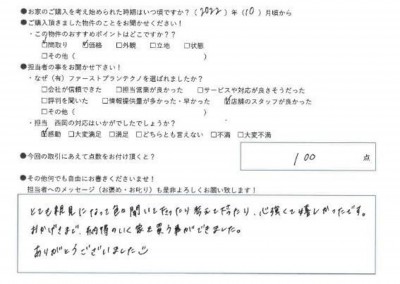 ●お家のご購入を考え始められた時期はいつ頃ですか?(2022)年(10)月頃から
●ご購入頂きました物件のことをお聞かせください!
・この物件のおすすめポイントはどこですか?
☑間取り ☑価格 □外観 □立地 □状態
□その他( )
●担当者の事をお聞かせ下さい!
・なぜ(有)ファーストプランテクノを選ばれましたか?
□会社が信頼できた □担当営業が良かった □サービスや対応が良さそうだった
□評判を聞いた □情報提供量が多かった・早かった ☑店舗のスタッフが良かった
□その他( )
・担当 西岡の対応はいかがでしたでしょうか?
☑感動 □大変満足 □満足 □どちらとも言えない □不満 □大変不満
●今回の取引にあえて点数をお付け頂くと? 100 点
●その他何でも自由にお書きくださいませ!
担当者へのメッセージ(お褒め・お叱り)も是非よろしくお願い致します!
とても親見になって色々聞いて下さったり考えて下さったり、心強くて嬉しかったです。
おかげさまで、納得のいく家を買う事ができました。
ありがとうございました